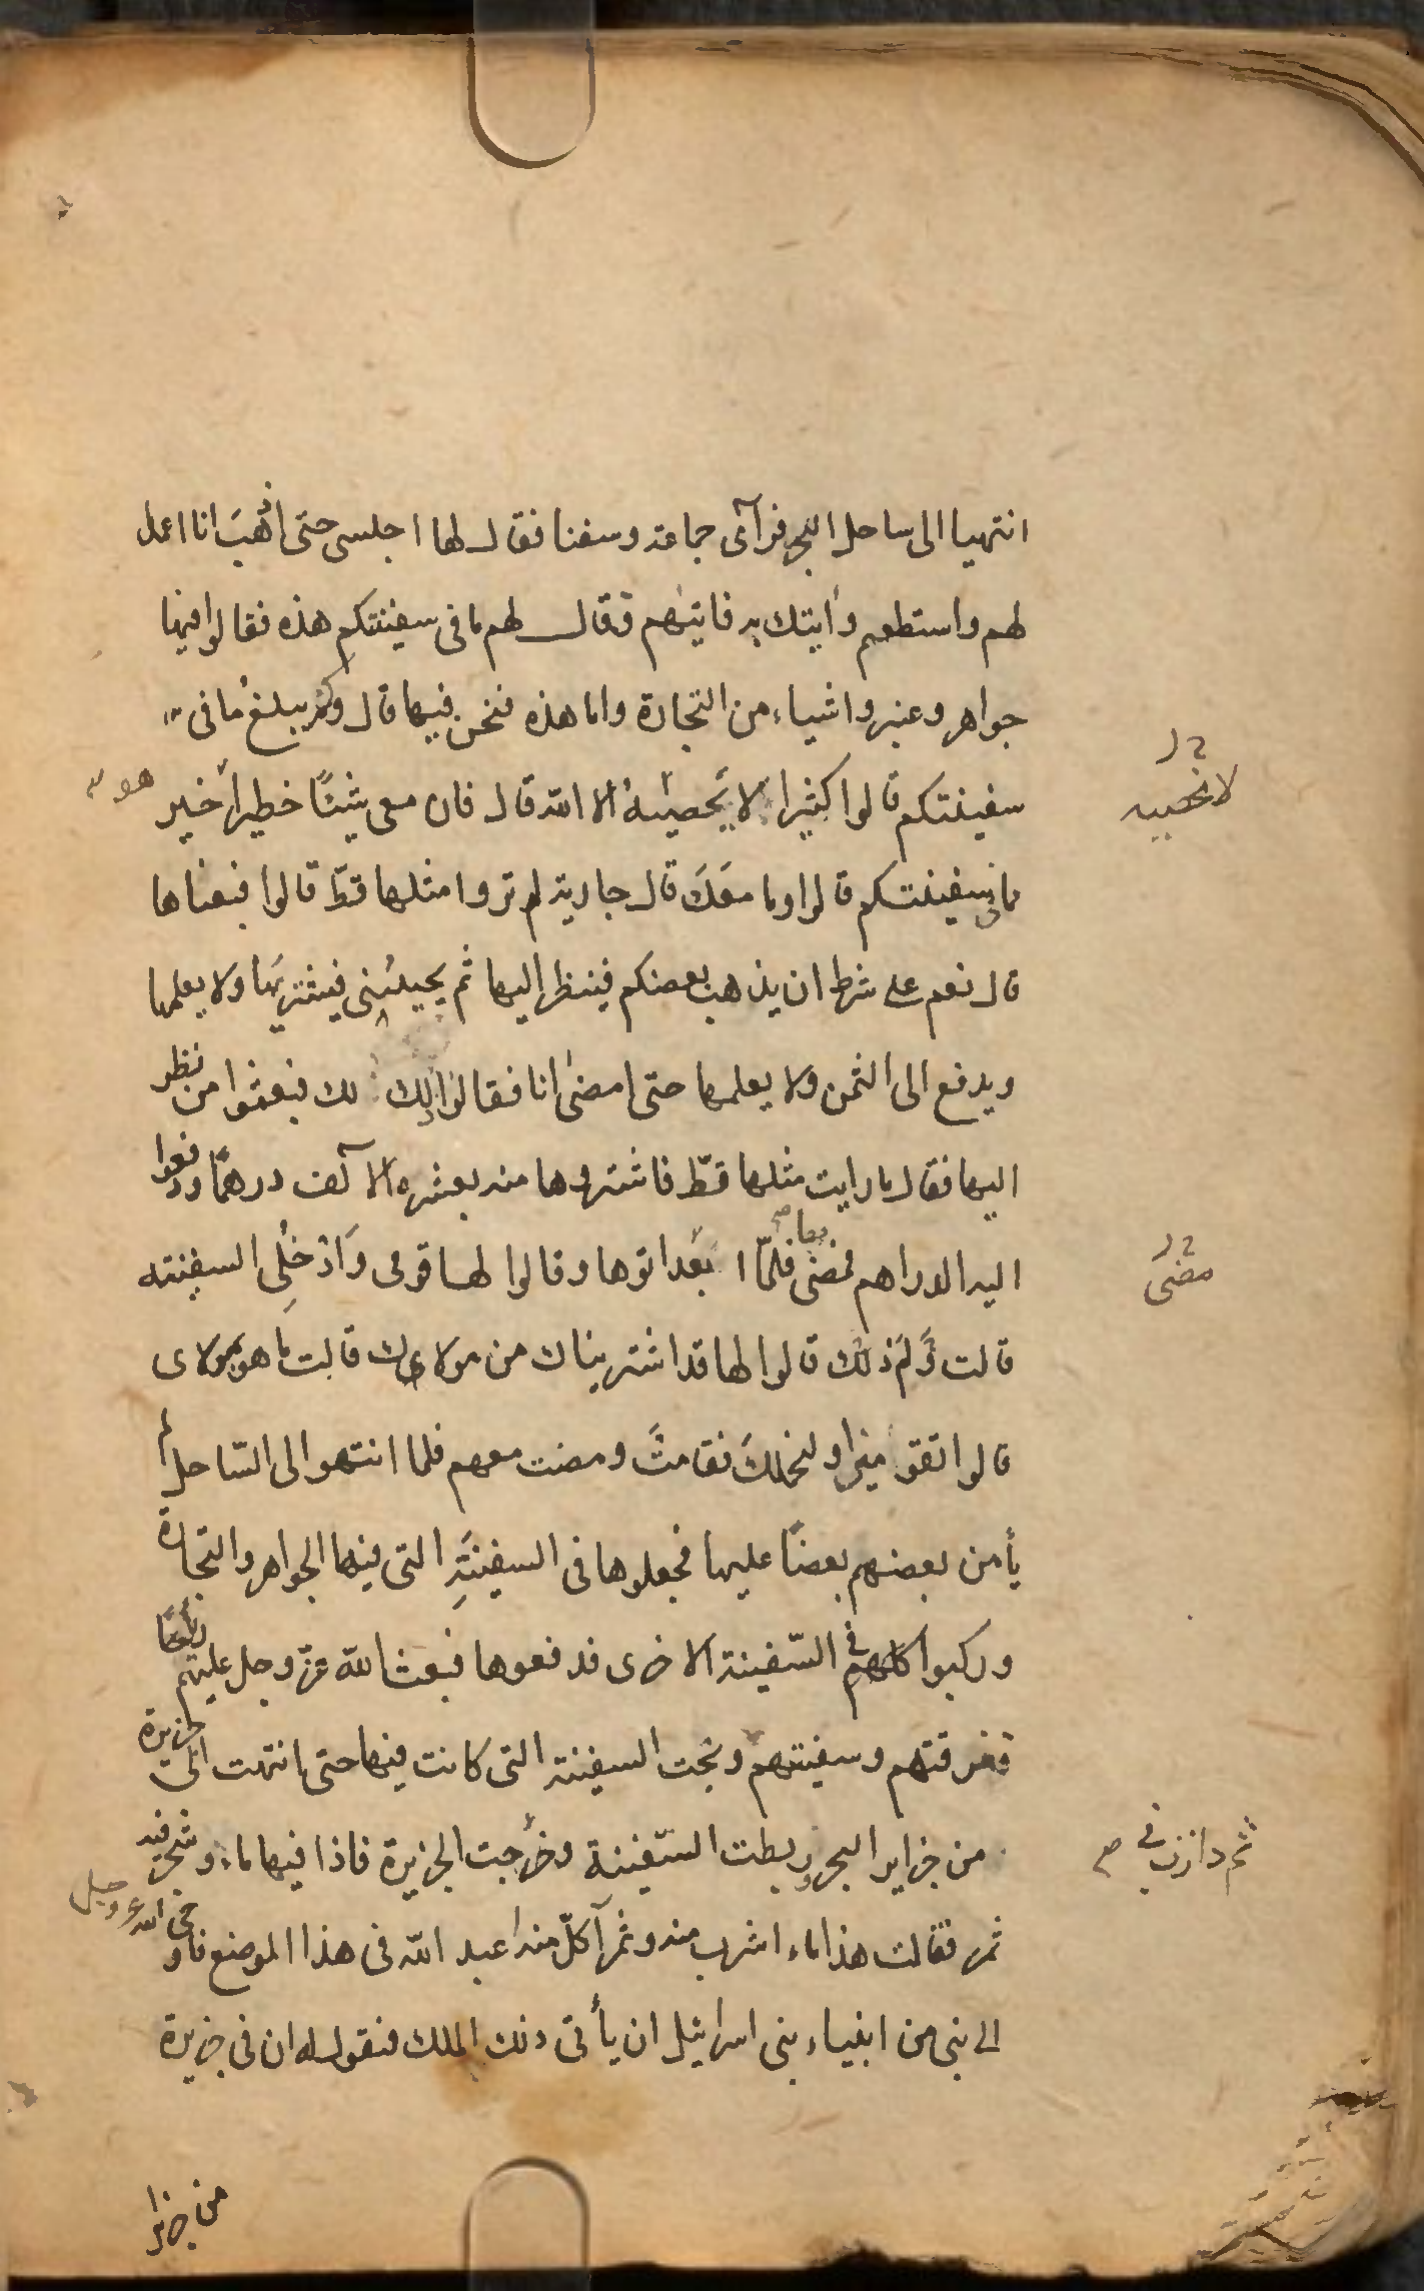 انتهيا الى ساحل البحر فرآى جماعة وسفنا فقال لها اجلسى حتى اذهبَ انا اعمل
لهم واستطعم وآتيتك به فاتيهم فقال لهم ما فى سفينتكم هذه فقالوا فيها
جواهر وعنبر واشياء من التجارة واما هذه فنحن فيها قال وكم يبلغ ما فى
سفينتكم قالوا كثيرا لا يحصيه الا الله قال فان معى شيئًا خطيراً خير
ما فى سفينتكم قالوا وما معَكَ قال جارية لم تروا مثلها قطّ قالوا فبعناها
قال نعم على شرط ان يذهب بعضكم فينظر اليها ثم يجيئنى فيشتريها ولا يعلمها
ويدفع الى الثمن ولا يعلمها حتى امضى انا فقالوا ذلك لك فبعثوا من نظر
اليها فقال ما رايت مثلها قطّ فاشتروها منه بعشره الآلف درهمًا ودفعوا
اليه الدراهم فمضى بها فلمّا بعد اتوها وقالوا لها قومى وَادْخُلِى السفينته
قالت وَلِمَ ذلك قالوا لها قد اشتريناك من مولاك قالت ما هو بمولاى
قالوا تقومين او لنحملك فقامتَ ومضت معهم فلما انتهوا الى السّاحل لم
يأمن بعضهم بعضًا عليها فجعلوها فى السفينةِ التى فيها الجواهر والتجارة
وركبوا كلهم فى السّفينة الاخرى فدفعوها فبعث الله عزّ وجل عليهم رياحًا
فغرقتهم وسفينتهم ونجت السفينة التى كانت فيها حتى انتهت الى جزيرة
من جزاير البحر وربطت السّفينة وخرجت الجزيرة فاذا فيها ماء وشجر فيه
ثمر فقالت هذا ماء اشرب منه وثمر آكلّ منه اعبد الله فى هذا الموضع فاوحى الله عز وجل
الى نبى من انبياء بنى اسرائيل ان يأتى ذلك الملك فنقول له ان فى جزيرة
من جزاير
هو
مضى